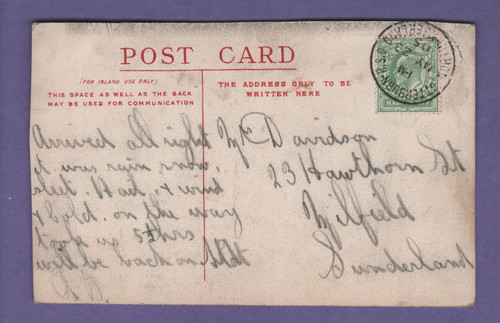 POST CARD
(FOR INLAND USE ONLY)
THIS SPACE AS WELL AS THE BACK
MAY BE USED FOR COMMUNICATION
THE ADDRESS ONLY TO BE
WRITTEN HERE
Arrived all right
it was rain snow,
sleet. Hail, & wind
& Cold. on the way
took us 5½ hrs
will be back on Mdt
Mr Davidson
23 Hawthorn St
Milfield
Sunderland